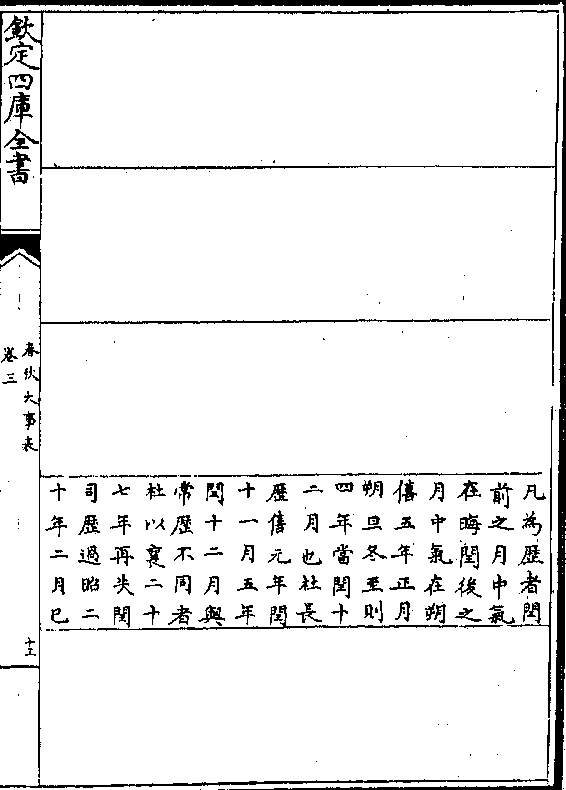 凡為歴者閏
前之月中氣
在晦閏後之
月中氣在朔
僖五年正月
朔旦冬至則
四年當閏十
二月也杜長
歴僖元年閏
十一月五年
閏十二月與
常歴不同者
杜以襄二十
七年再失閏
司歴過昭二
十年二月已
欽定四庫全書
春秋大事表
卷三